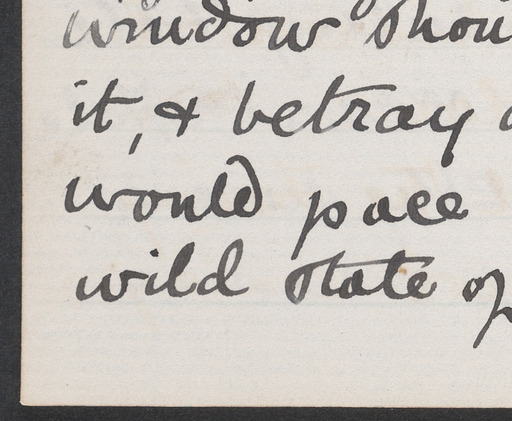 window shou
it, & betray
would pace
wild state of